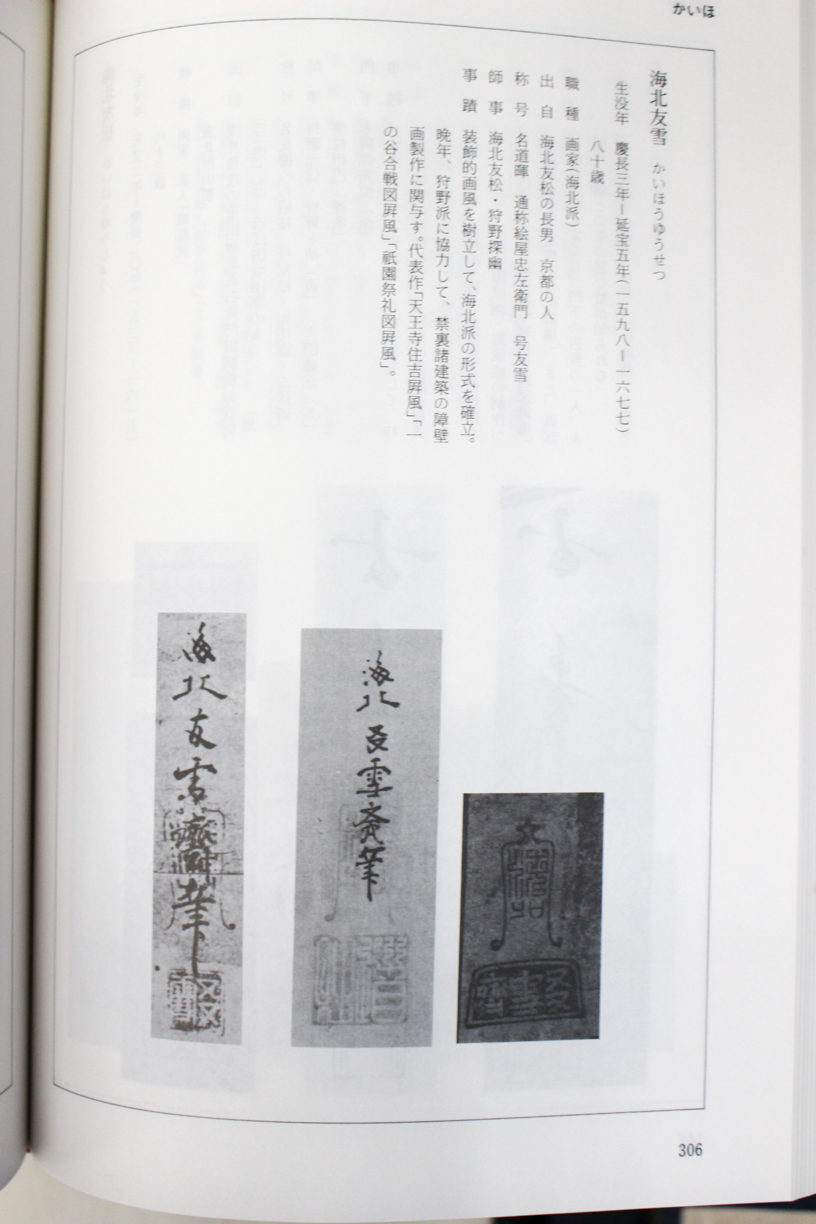 かいほ
海北友雪 かいほうゆうせつ
生没年 慶長三年ー延宝五年(一五九八ー一六七七)
八十歳
職種 画家(海北派)
出自 海北友松の長男 京都の人
称号 名道暉 通称絵屋忠左衛門 号友雪
師事 海北友松・狩野探幽
事蹟 装飾的画風を樹立して、海北派の形式を確立。
晩年、狩野派に協力して、禁裏諸建築の障壁
画製作に関与す。代表作「天王寺住吉屛風」「一
の谷合戦図屛風」「祇園祭礼図屛風」。
海北友雪斎筆
海北友雪齋筆
306